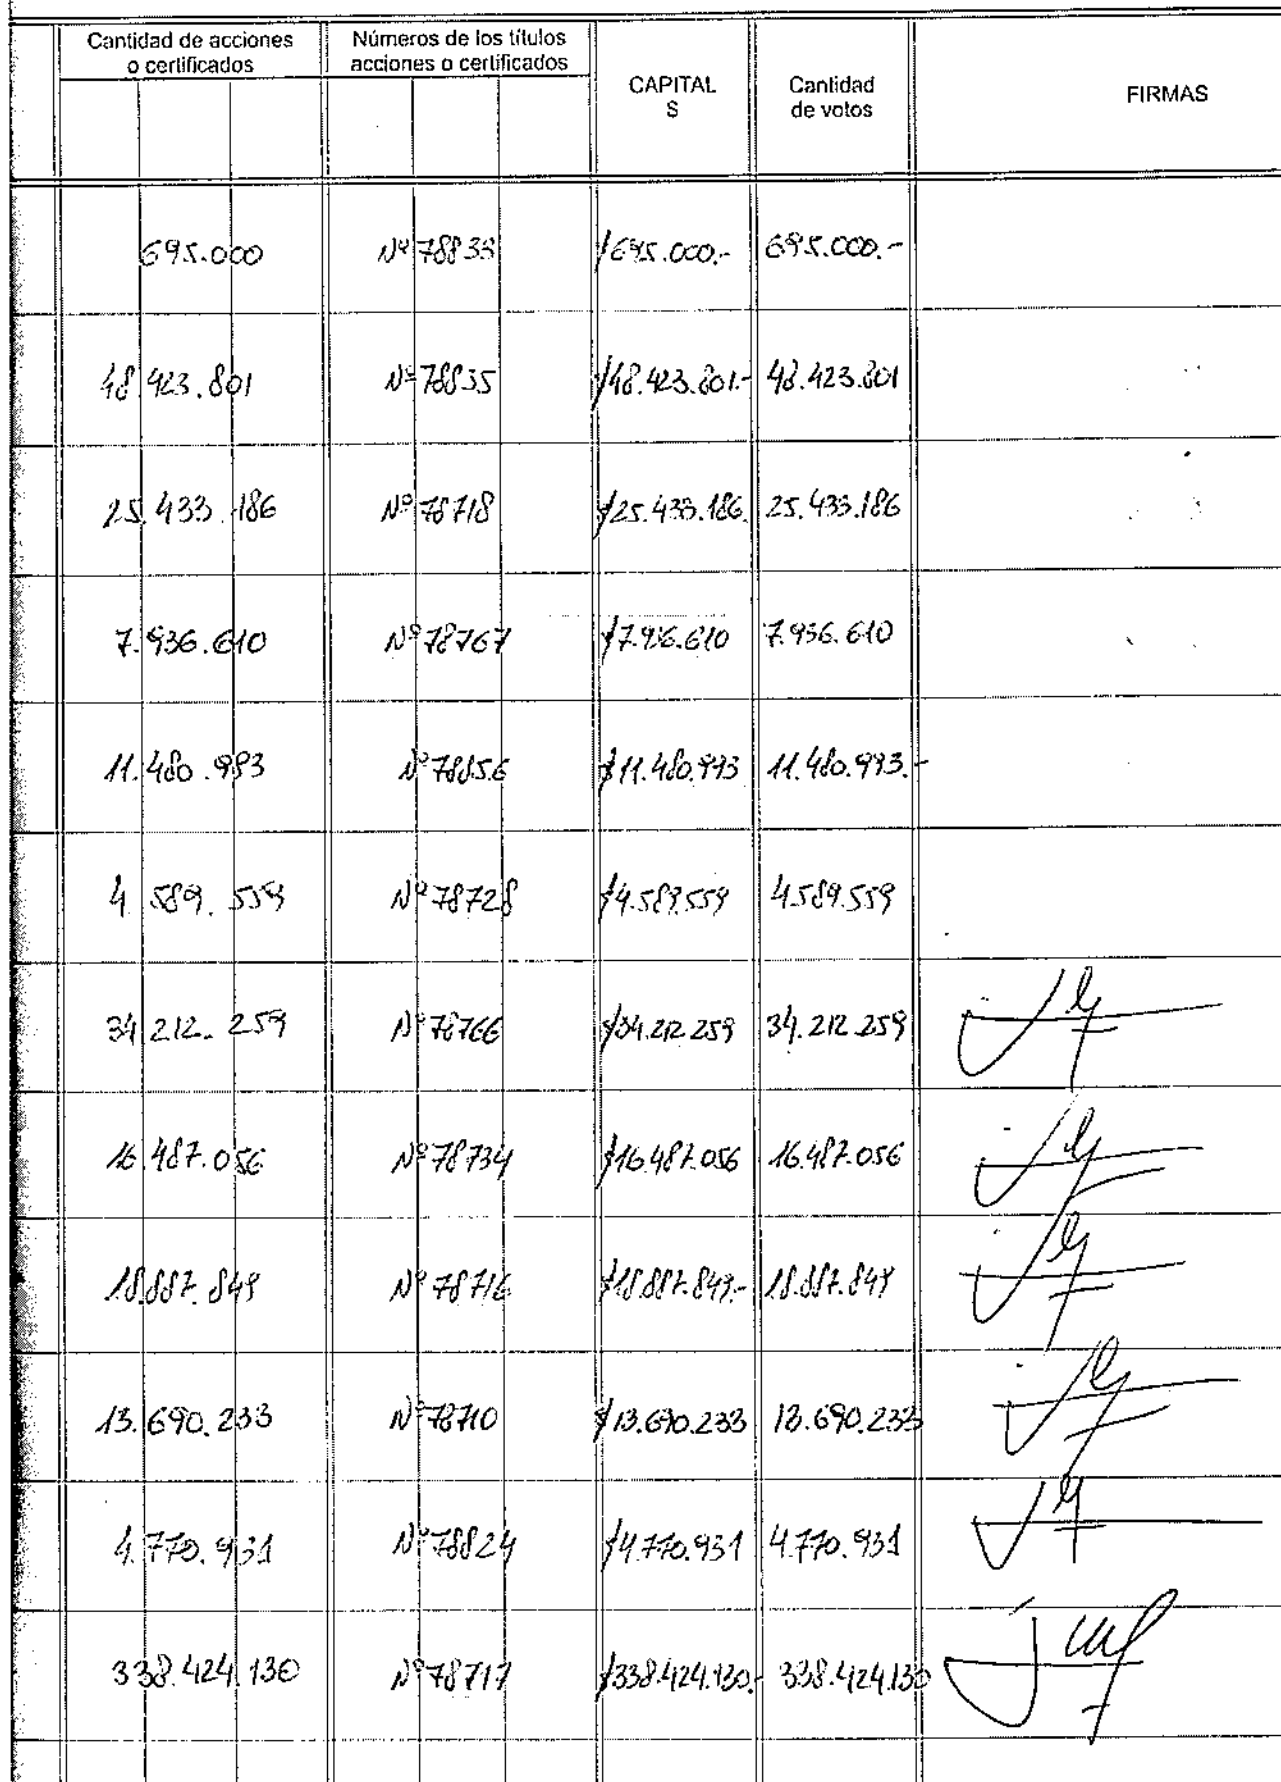 Cantidad de acciones
o certificados
Números de los títulos
acciones o certificados
CAPITAL
$
Cantidad
de votos
FIRMAS
695.000 Nº 78833 $695.000.- 695.000.-
48.423.801 Nº 78835 $48.423.801.- 48.423.801
25.433.186 Nº 78718 $25.433.186. 25.433.186
7.936.610 Nº 78767 $7.936.610 7.936.610
11.480.993 Nº 78856 $11.480.993 11.480.993.-
4.589.559 Nº 78728 $4.589.559 4.589.559
34.212.259 Nº 78766 $34.212.259 34.212.259
16.487.056 Nº 78734 $16.487.056 16.487.056
18.887.849 Nº 78716 $18.887.849.- 18.887.849
13.690.233 Nº 78710 $13.690.233 13.690.233
4.770.931 Nº 78824 $4.770.931 4.770.931
338.424.130 Nº 78717 $338.424.130.- 338.424.130